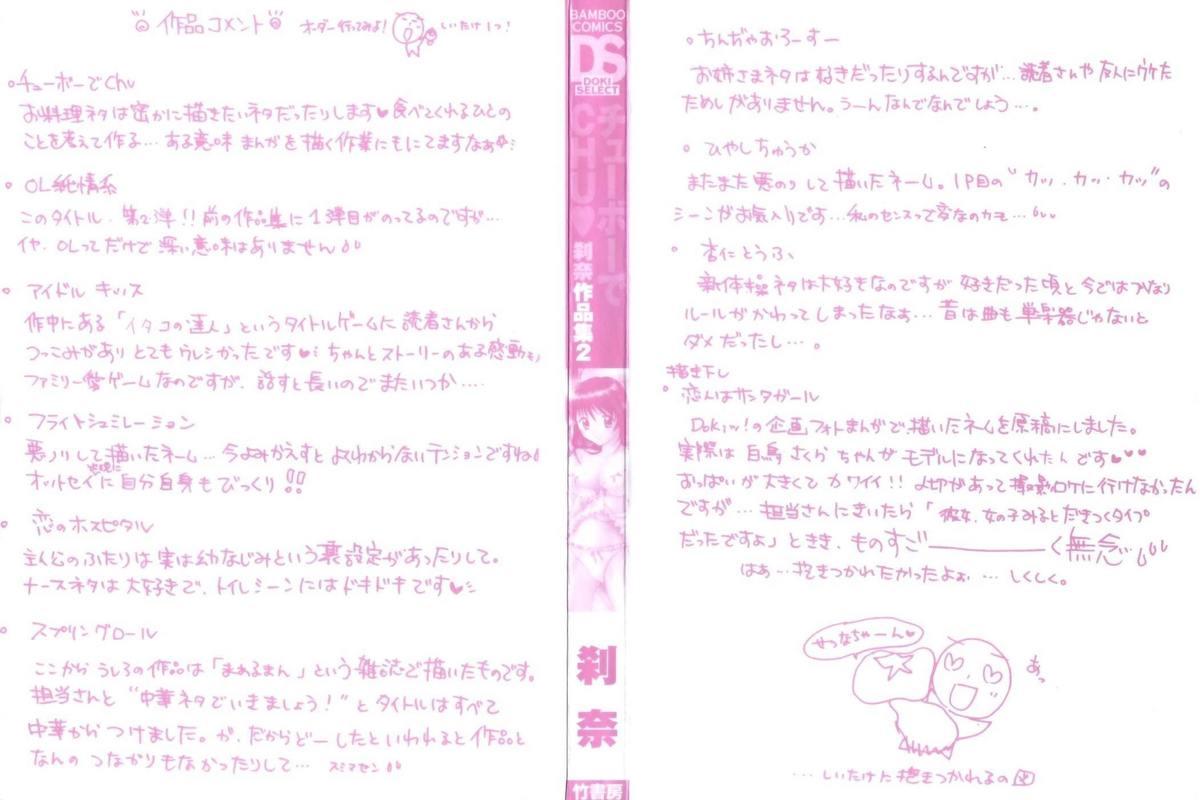 作品コメント
オーダー行ってみよ!
しいたけ1つ!
・チューボーでChu
お料理ネタは密かに描きたいネタだったりします♥食べてくれるひとの
ことを考えて作る…ある意味まんがを描く作業にもにてますなぁ
・OL純情系
このタイトル、第2弾!!前の作品集に1弾目がのってるのですが…
イヤ、OLってだけで深い意味はありません
・アイドルキッス
作中にある「イタコの達人」というタイトルゲームに読者さんから
つっこみがありとてもウレシかったです♥ちゃんとストーリーのある感動も
ファミリー愛ゲームなのですが、話すと長いのでまたいつか…
・フライトシュミレーション
悪ノリして描いたネーム…今よみかえすとよくわからないテンションですね
オットセイに自分自身もびっくり!!
・恋のホスピタル
主人公のふたりは実は幼なじみという裏設定があったりして。
ナースネタは大好きで、トイレシーンにはドキドキです♥
・スプリングロール
ここからうしろの作品は「まぁるまん」という雑誌で描いたものです。
担当さんと“中華ネタでいきましょう!”とタイトルはすべて
中華からつけました。が、だからどーしたといわれると作品と
なんのつながりもなかったりして…スミマセン
BAMBOO
COMICS
DS
DOKI
SELECT
チューボーで
CHU♥
刹奈作品集2
刹奈
竹書房
・ちんぢゃおろーすー
お姉さまネタは好きだったりするんですが…読者さんや友人にウケた
ためしがありません。うーんなんでなんでしょう…。
・ひやしちゅうか
またまた悪のりして描いたネーム。1P目の“カッ・カッ・カッ”の
シーンがお気入りです…私のセンスって変なのカモ…
・杏にとうふ
新体操ネタは大好きなのですが好きだった頃と今ではかなり
ルールがかわってしまったなぁ…昔は曲も単楽器じゃないと
ダメだったし…。
描き下し
・恋人はサンタガール
Doki!の企画フォトまんがで、描いたネームを原稿にしました。
実際は白鳥さくらちゃんがモデルになってくれたんです♥♥♥
おっぱいが大きくてカワイイ!!〆切があって撮影ロケに行けなかったん
ですが…担当さんにきいたら「彼女、女の子みるとだきつくタイプ
だったですよ」ときき、ものすご――――く無念…
はぁ…抱きつかれたかったよぉ…しくしく。
せつなちゃーん♥
あっ
…しいたけに抱きつかれるの図